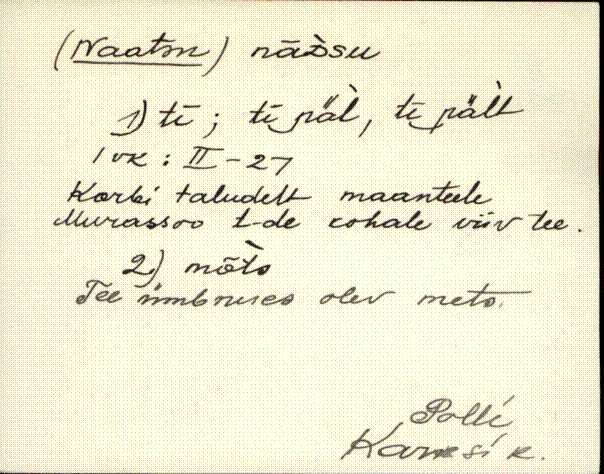 (Naatsu) nāDsu
1) tī; tī pǟl, tī pǟlt
1 vk: II-27
Korbi taludelt maanteele
Murassoo t-de kohale viiv tee.
2) mõts
Tee ümbruses olev mets.
Polli
Karksi k.